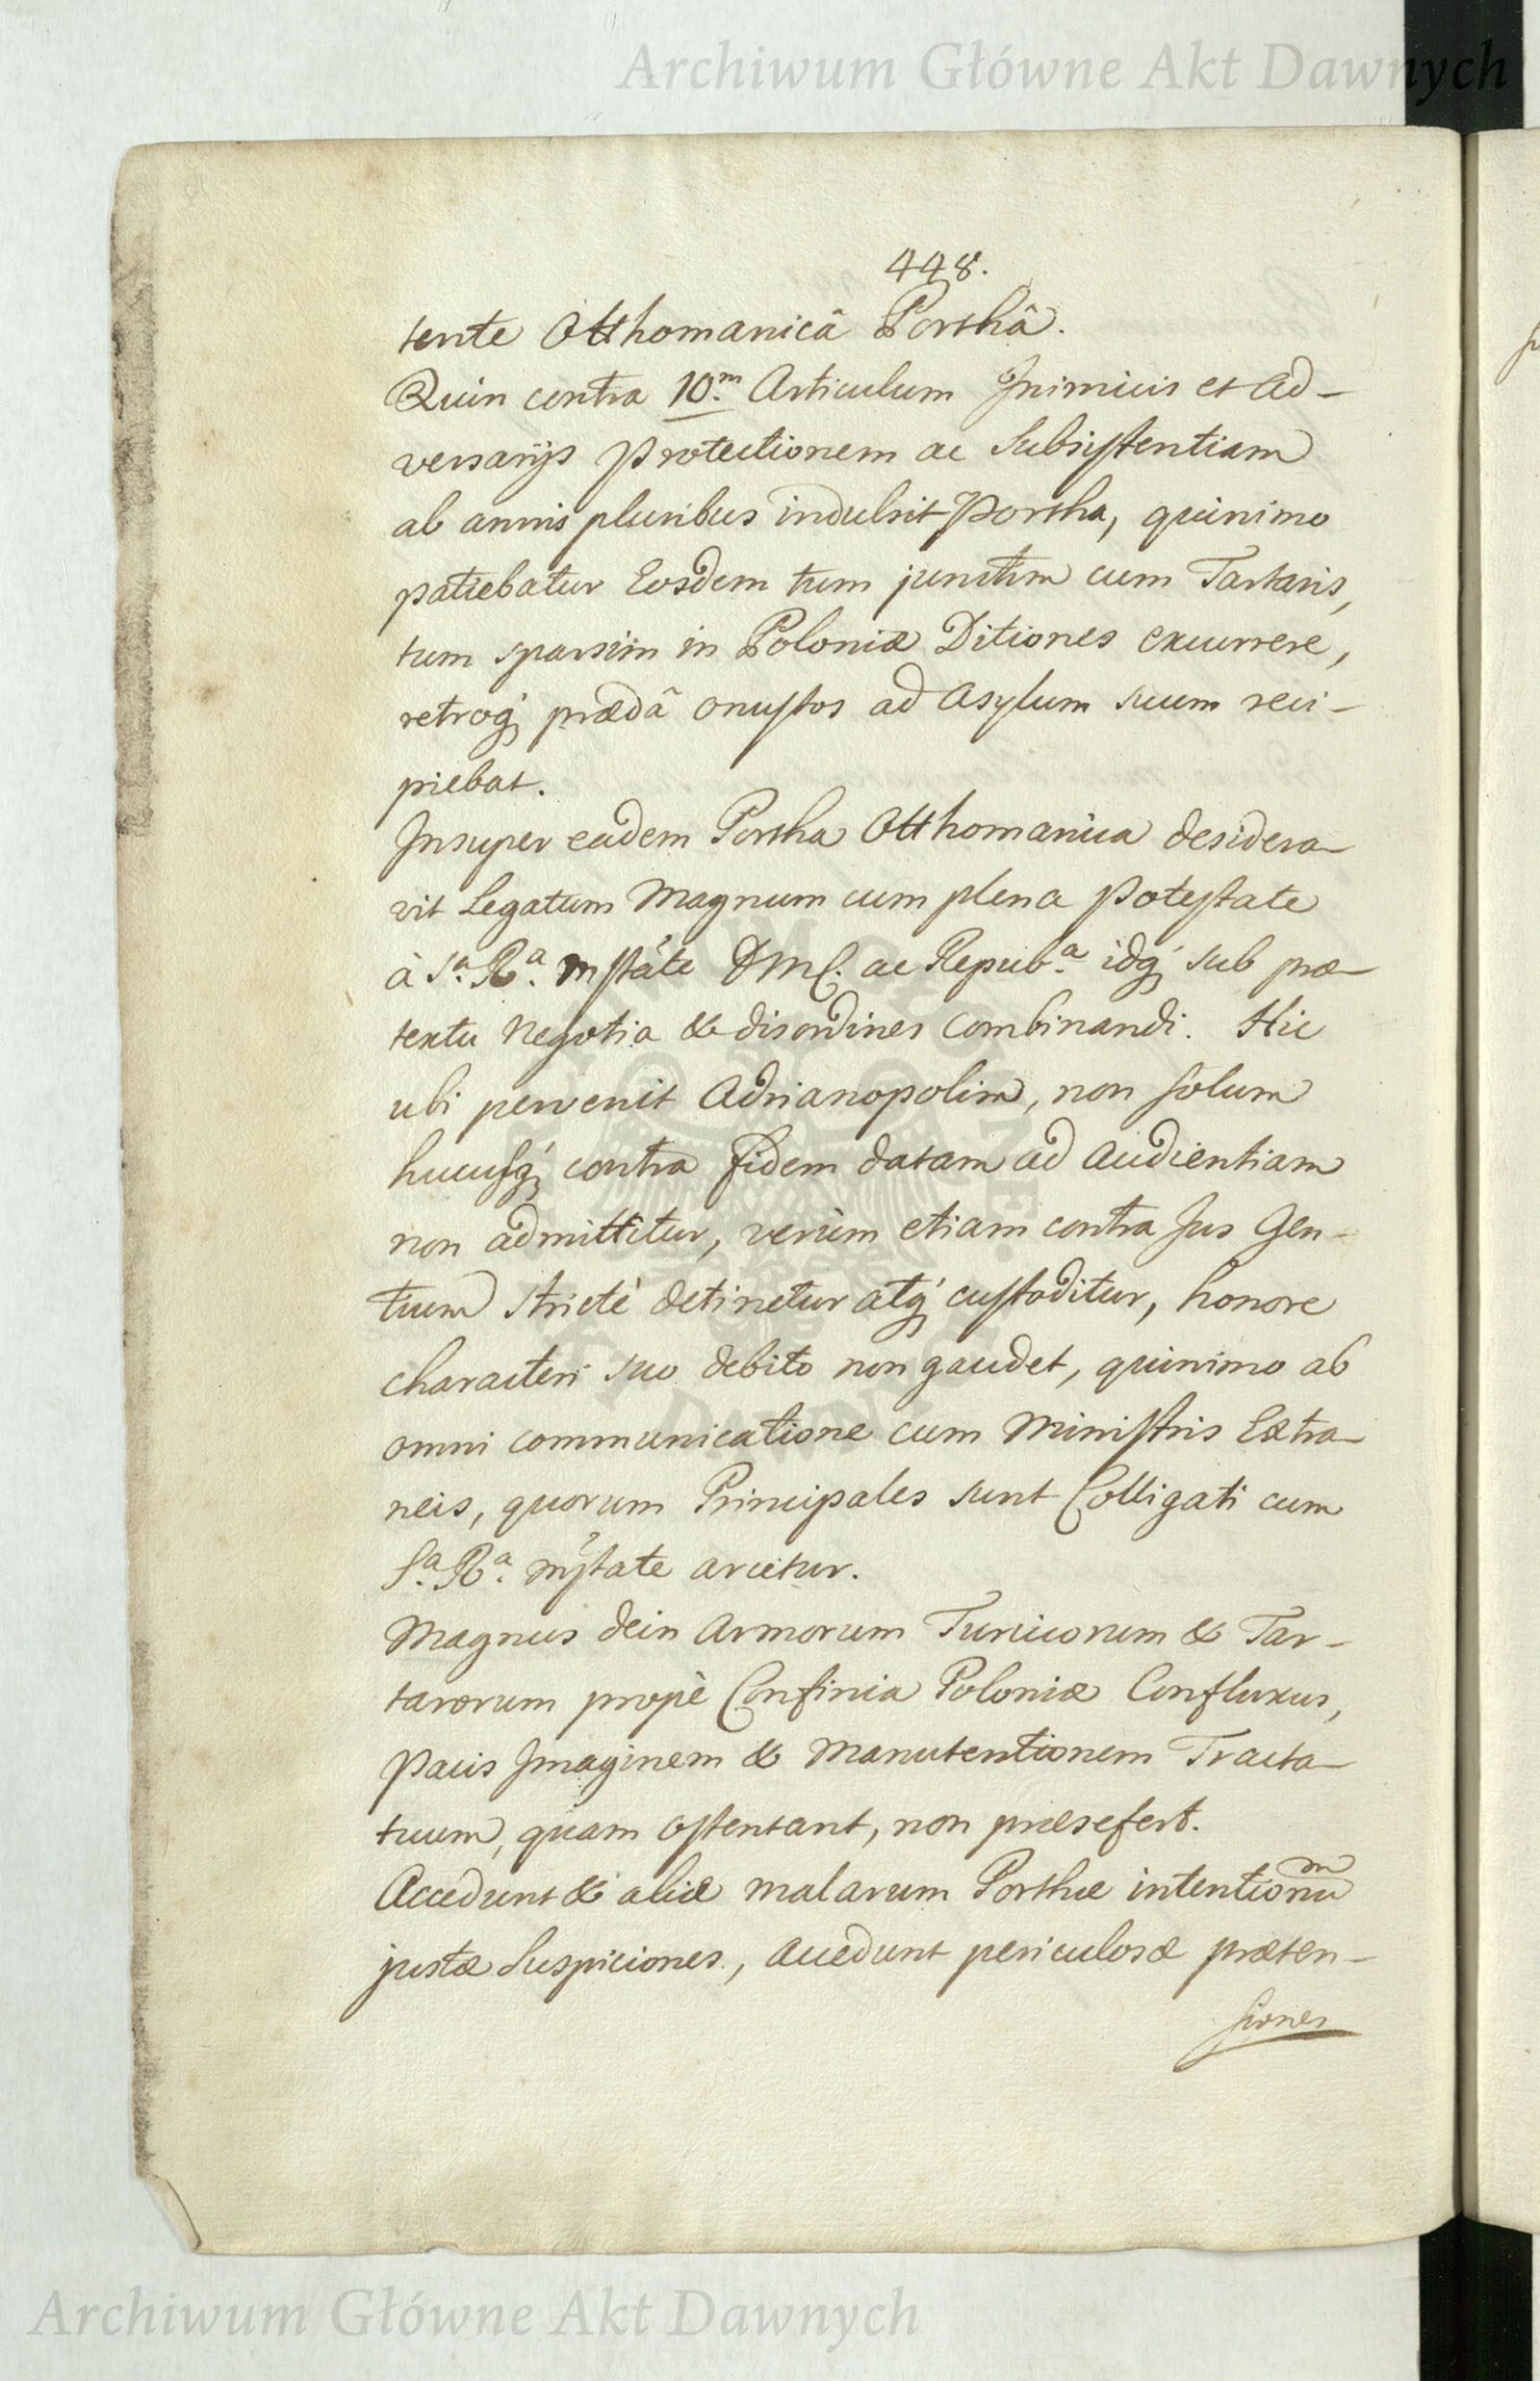 Archiwum Główne Akt Dawnych
448.
tente Otthomanicâ Porthâ.
Quin contra 10.m Articulum Inimicis et Ad-
versarijs Protectionem ac Subsistentiam
ab annis pluribus indulsit Portha, quinimo
patiebatur Eosdem tum junctim cum Tartaris,
tum sparsim in Poloniæ Ditiones excurrere,
retroq́; prædâ onustos ad Asylum suum reci-
piebat.
Insuper eadem Portha Otthomanica desidera-
vit Legatum Magnum cum plena Potestate
à S.a R.a Mstáte DMC. ac Repub.a idq́; sub præ-
textu Negotia & disordines Combinandi. Hic
ubi pervenit Adrianopolim, non solum
hucusq́; contra fidem datam ad Audientiam
non admittitur, verùm etiam contra Jus Gen-
tium strictè detinetur atq́; custoditur, honore
characteri suo debito non gaudet, quinimo ab
omni communicatione cum Ministris Extra-
neis, quorum Principales sunt Colligati cum
S.a R.a Mstate arcetur.
Magnus dein Armorum Turcicorum & Tar-
tarorum propè Confinia Poloniæ Confluxus,
Pacis Imaginem & Manutentionem Tracta-
tuum, quam ostentant, non præsefert.
Accedunt & aliæ malarum Porthæ intentionum
justæ Suspiciones, accedunt periculosæ præten-
siones
Archiwum Główne Akt Dawnych